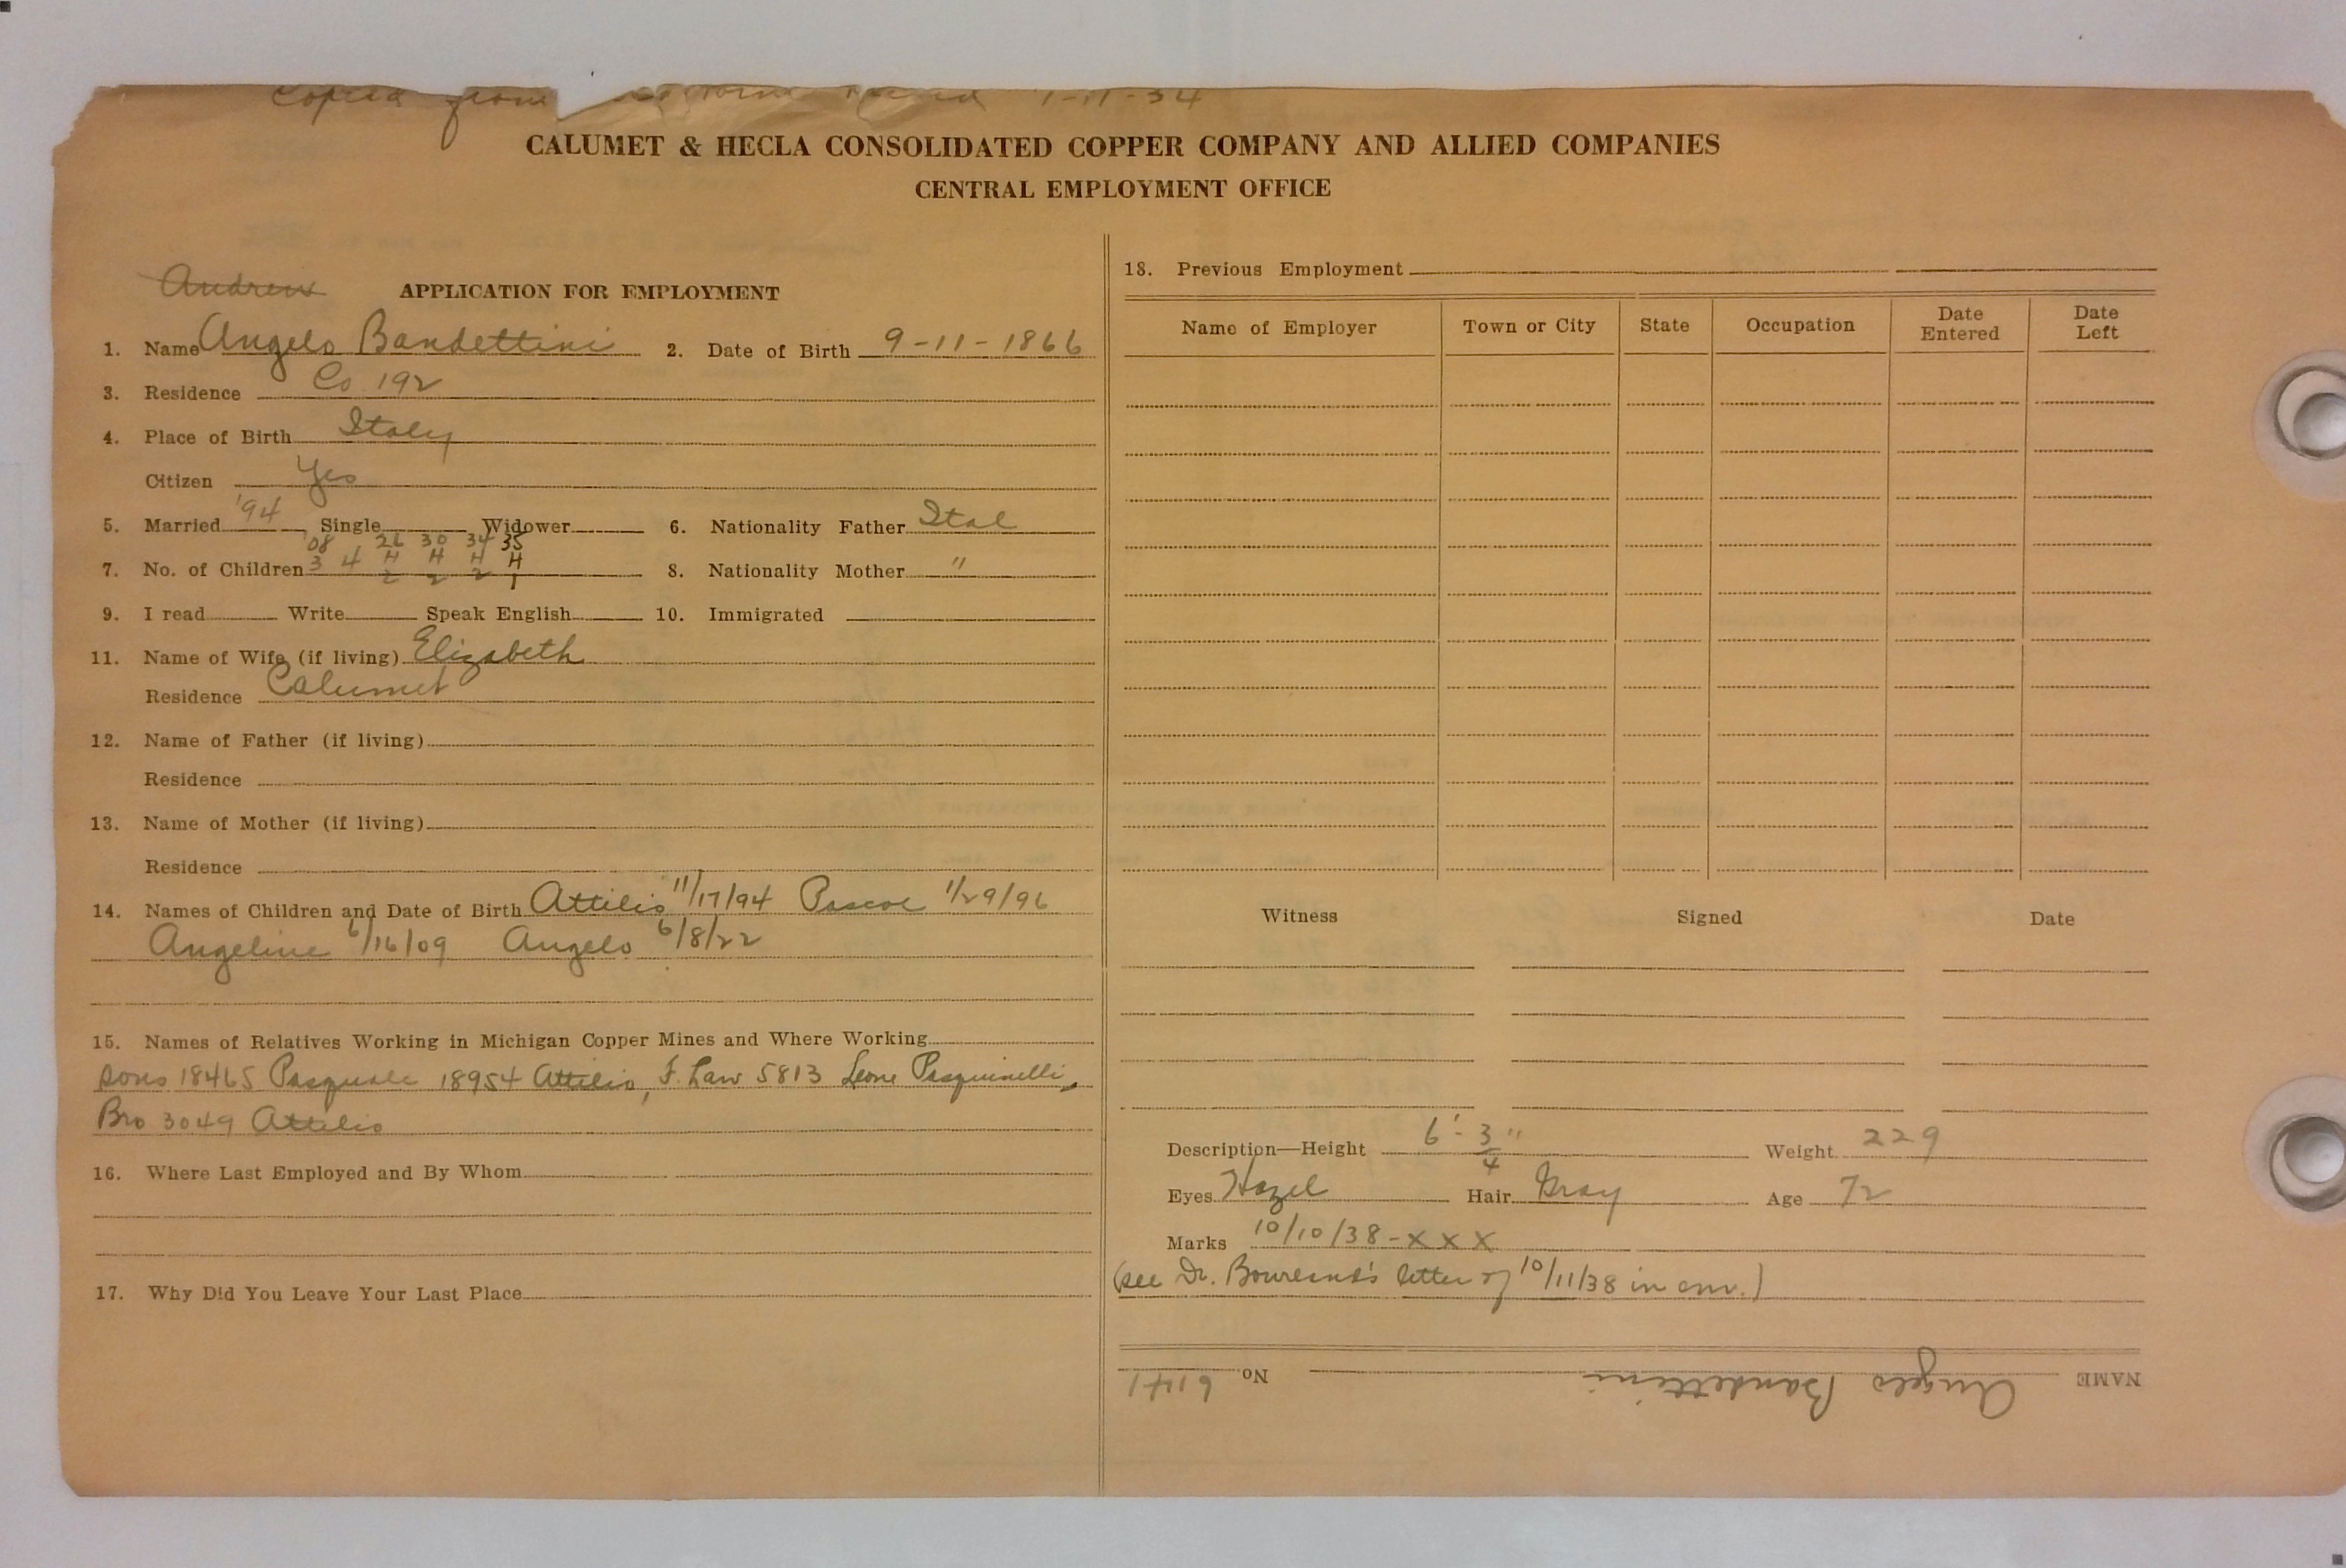 Copied from 1-11-34
CALUMET & HECLA CONSOLIDATED COPPER COMPANY AND ALLIED COMPANIES
CENTRAL EMPLOYMENT OFFICE
Andrew
APPLICATION FOR EMPLOYMENT
1. Name Angelo Bandettini 2. Date of Birth 9-11-1866
3. Residence Co 192
4. Place of Birth Italy
Citizen Yes
5. Married '94 Single Widower 6. Nationality Father Ital
'08 26 30 34 35
7. No. of Children 3 4 H H H H 8. Nationality Mother "
2 2 2 1
9. I read Write Speak English 10. Immigrated
11. Name of Wife (if living) Elizabeth
Residence Calumet
12. Name of Father (if living)
Residence
13. Name of Mother (if living)
Residence
14. Names of Children and Date of Birth Attilio 11/17/94 Pascoe 1/29/96
Angeline 6/16/09 Angelo 6/8/22
15. Names of Relatives Working in Michigan Copper Mines and Where Working
sons 18465 Pasquale 18954 Attilio, F. Law 5813 Leone Pasquinelli,
Bro 3049 Attilio
16. Where Last Employed and By Whom
17. Why Did You Leave Your Last Place
18. Previous Employment
Name of Employer Town or City State Occupation Date Entered Date Left
Witness Signed Date
Description—Height 6'-3/4" Weight 229
Eyes Hazel Hair Gray Age 72
Marks 10/10/38-x x x
(see Dr. letter of 10/11/38 in env.)
NAME Angelo Bandettini No. 6141